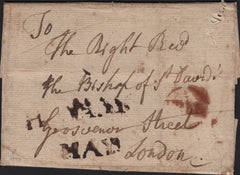 To
The Right Rev'd
the Bishop of St David's
Grosvenor Street
London